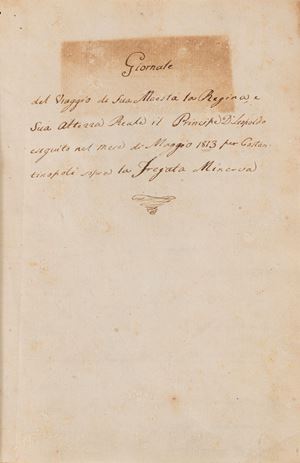 Giornale
del Viaggio di Sua Maestà la Regina, e
Sua Altezza Reale il Principe D. Leopoldo
eseguito nel mese di Maggio 1813 per Costan-
tinopoli sopra la Fregata Minerva